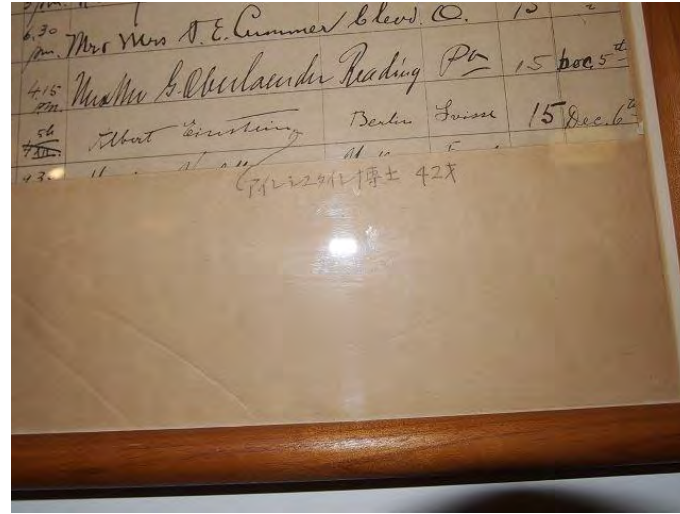 6.30 pm. Mr & Mrs D. E. Cummer Clevd. O. 15
4.15 pm. Mr & Mrs G. Oberlaender Reading Pa 15 Dec. 5th
Albert Einstein Berlin Suisse 15 Dec. 6th
4.3
アインシュタイン博士 42才